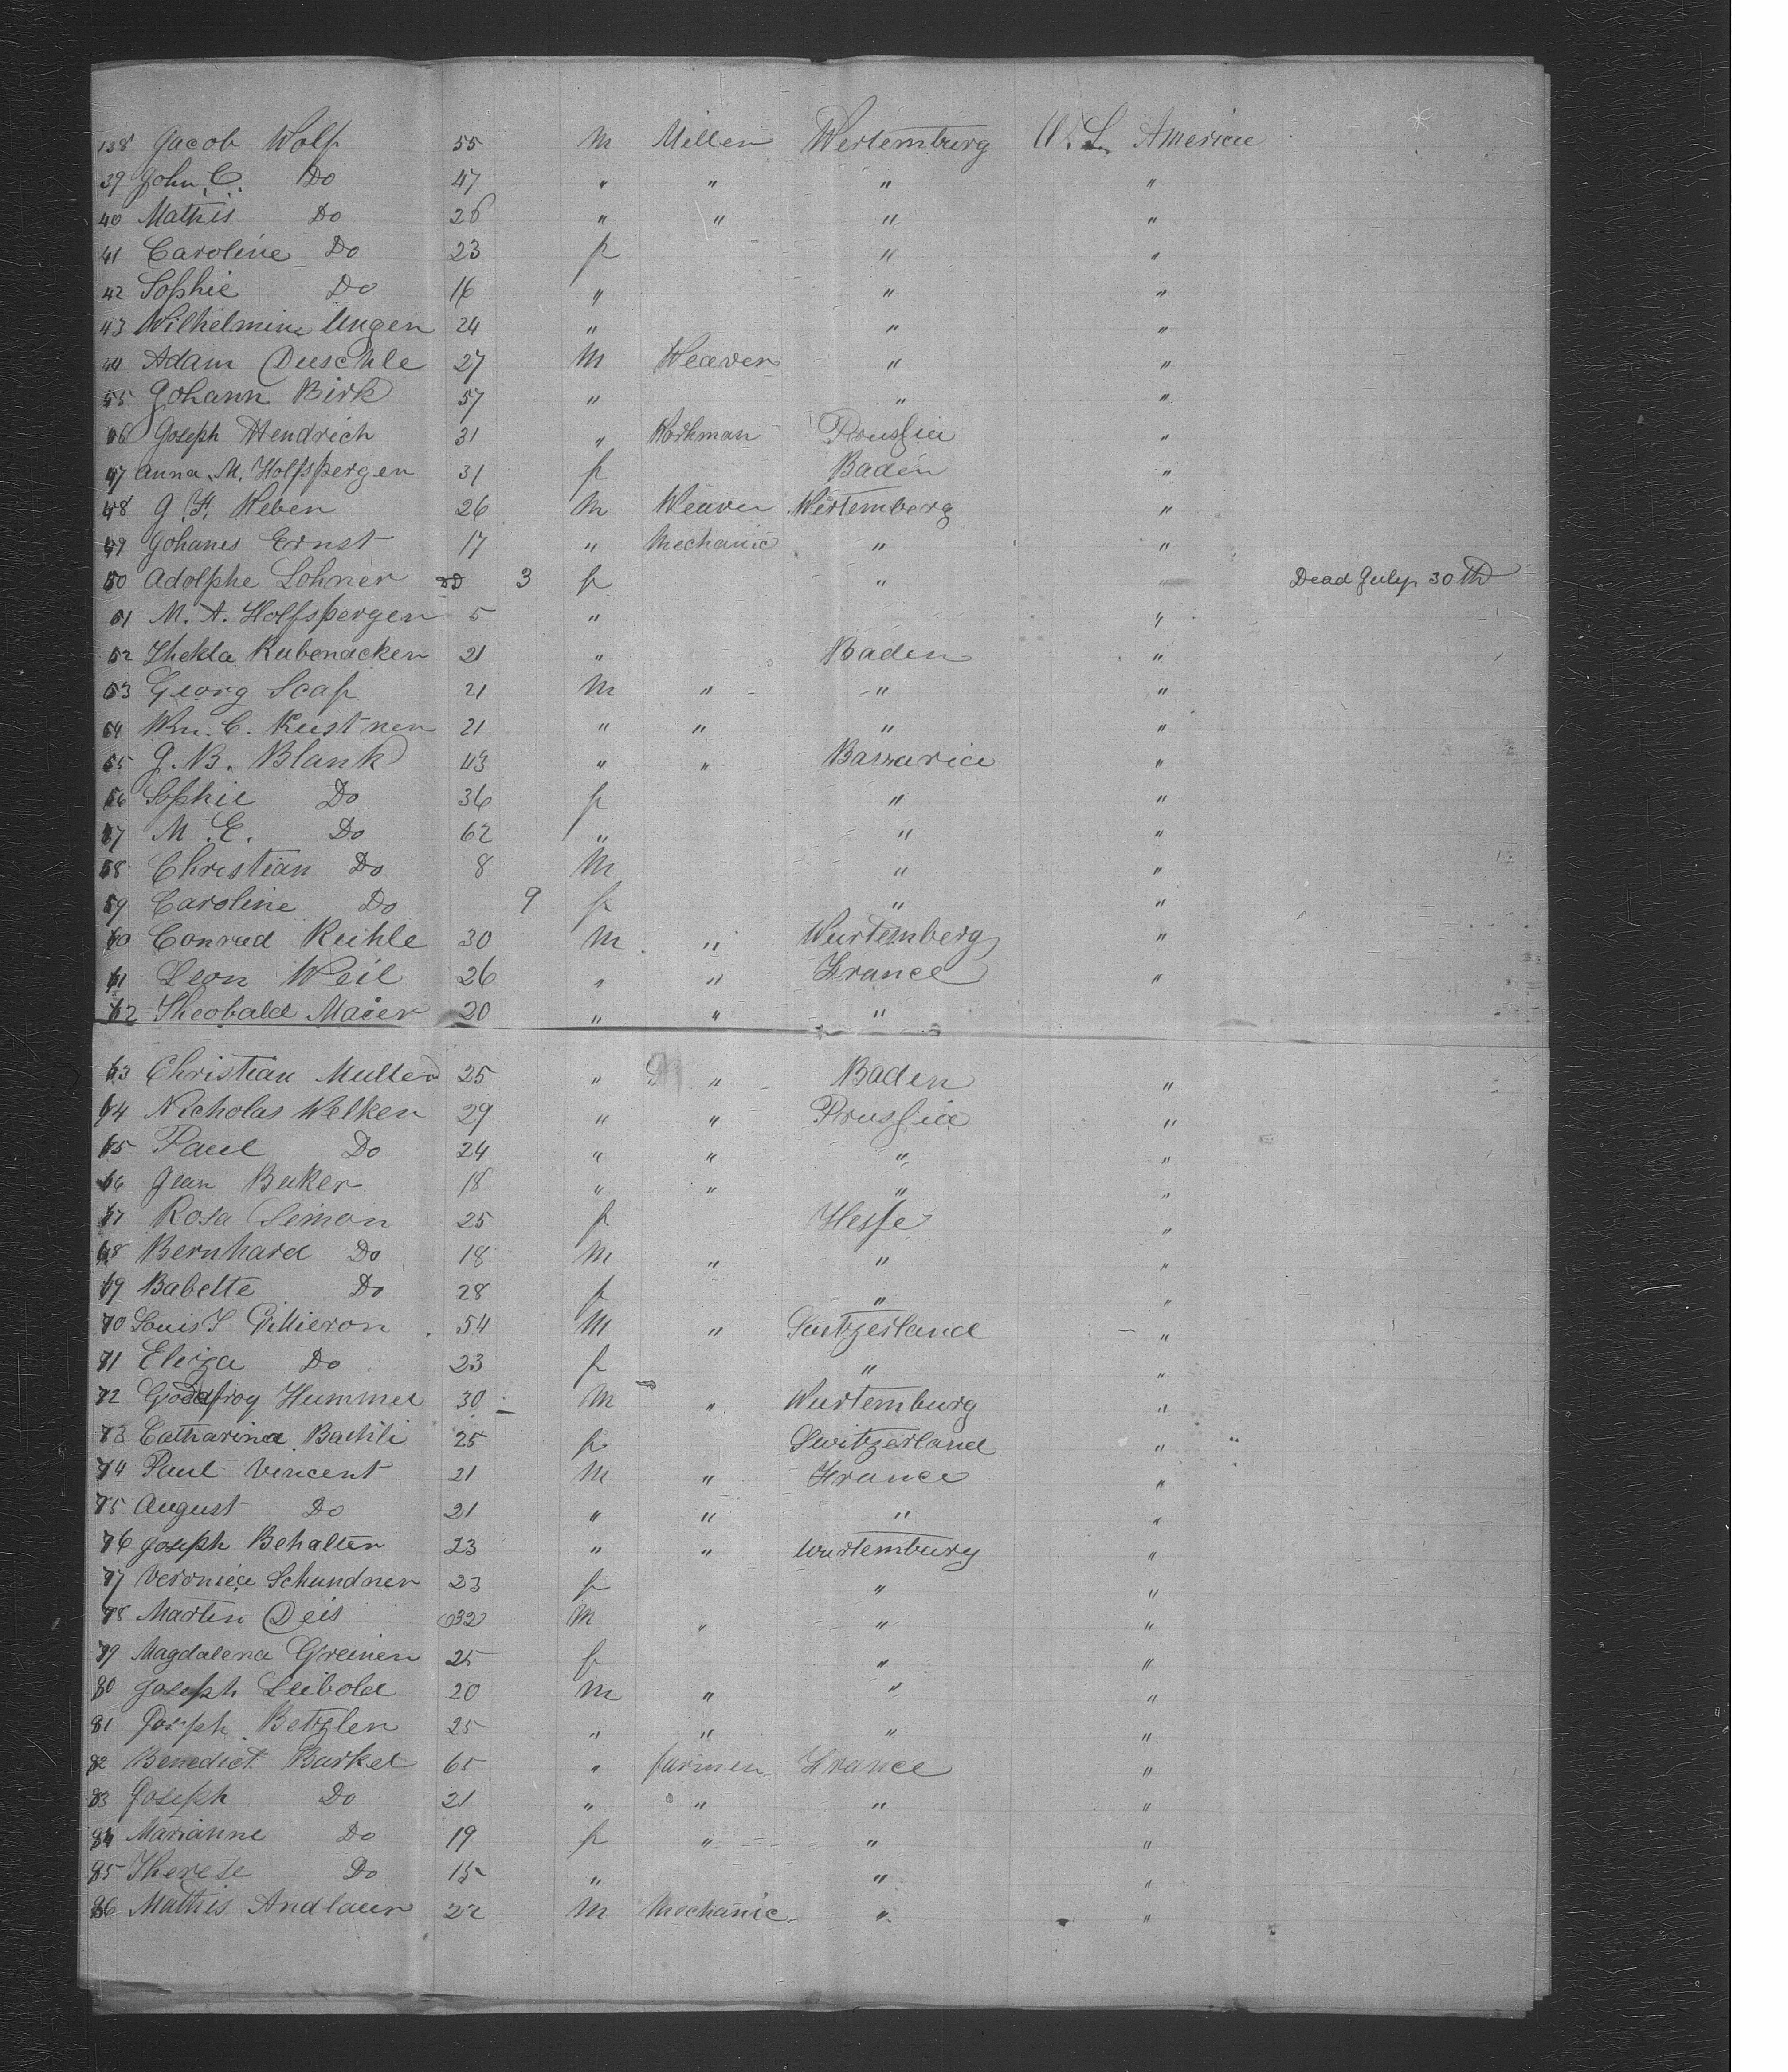 138 Jacob Wolf 55 M Miller Wertemburg U. S. America
39 John C. Do 47 " " " "
40 Mathis Do 26 " " " "
41 Caroline Do 23 f " "
42 Sophie Do 16 " " "
43 Wilhelmine Unger 24 " " "
44 Adam Duschle 27 M Weaver " "
45 Johann Birk 57 " " "
46 Joseph Hendrich 31 " Workman Prussia "
47 Anna M. Holfsperger 31 f Baden "
48 G. F. Weber 26 M Weaver Wertemberg "
49 Johanes Ernst 17 " Mechanic " "
50 Adolphe Lohner 3 f " " Dead July 30 Th
51 M. A. Holfsperger 5 " "
52 Thekla Rubenacker 21 " Baden "
53 Georg Scaf 21 M " " "
54 Wm. C. Kustner 21 " " " "
55 J. B. Blank 43 " " Bavaria "
56 Sophie Do 36 f " "
57 M. E. Do 62 " " "
58 Christian Do 8 M " "
59 Caroline Do 9 f " "
60 Conrad Reihle 30 M " Wurtemberg "
61 Leon Weil 26 " " France "
62 Theobald Maier 20 " " "
63 Christian Muller 25 " " Baden "
64 Nicholas Welker 29 " " Prussia "
65 Paul Do 24 " " " "
66 Jean Buker 18 " " " "
67 Rosa Simon 25 f Hesse "
68 Bernhard Do 18 M " " "
69 Babette Do 28 f " "
70 Louis S Gillieron 54 M " Switzerland "
71 Eliza Do 23 f " "
72 Godefroy Hummel 30 M " Wurtemburg "
73 Catharina Bachli 25 f Switzerland "
74 Paul Vincent 21 M " France "
75 August Do 21 " " " "
76 Joseph Behalter 23 " " Wurtemburg "
77 Veronica Schundner 23 f " "
78 Martin Deis 32 M " " "
79 Magdalena Greiner 25 f " "
80 Joseph Leibold 20 M " " "
81 Joseph Betzler 25 " " " "
82 Benedict Burkel 65 " farmer France "
83 Joseph Do 21 " " " "
84 Marianne Do 19 f " " "
85 Therese Do 15 " " "
86 Mathis Andlaur 22 M Mechanic " "